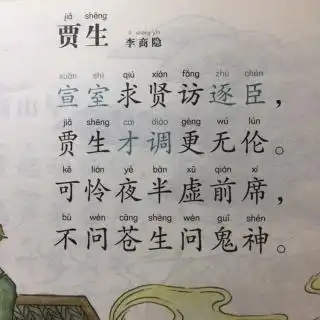 jiǎ shēng
贾生
lǐ shāng yǐn
李商隐
xuān shì qiú xián fǎng zhú chén
宣室求贤访逐臣，
jiǎ shēng cái diào gèng wú lún
贾生才调更无伦。
kě lián yè bàn xū qián xí
可怜夜半虚前席，
bù wèn cāng shēng wèn guǐ shén
不问苍生问鬼神。